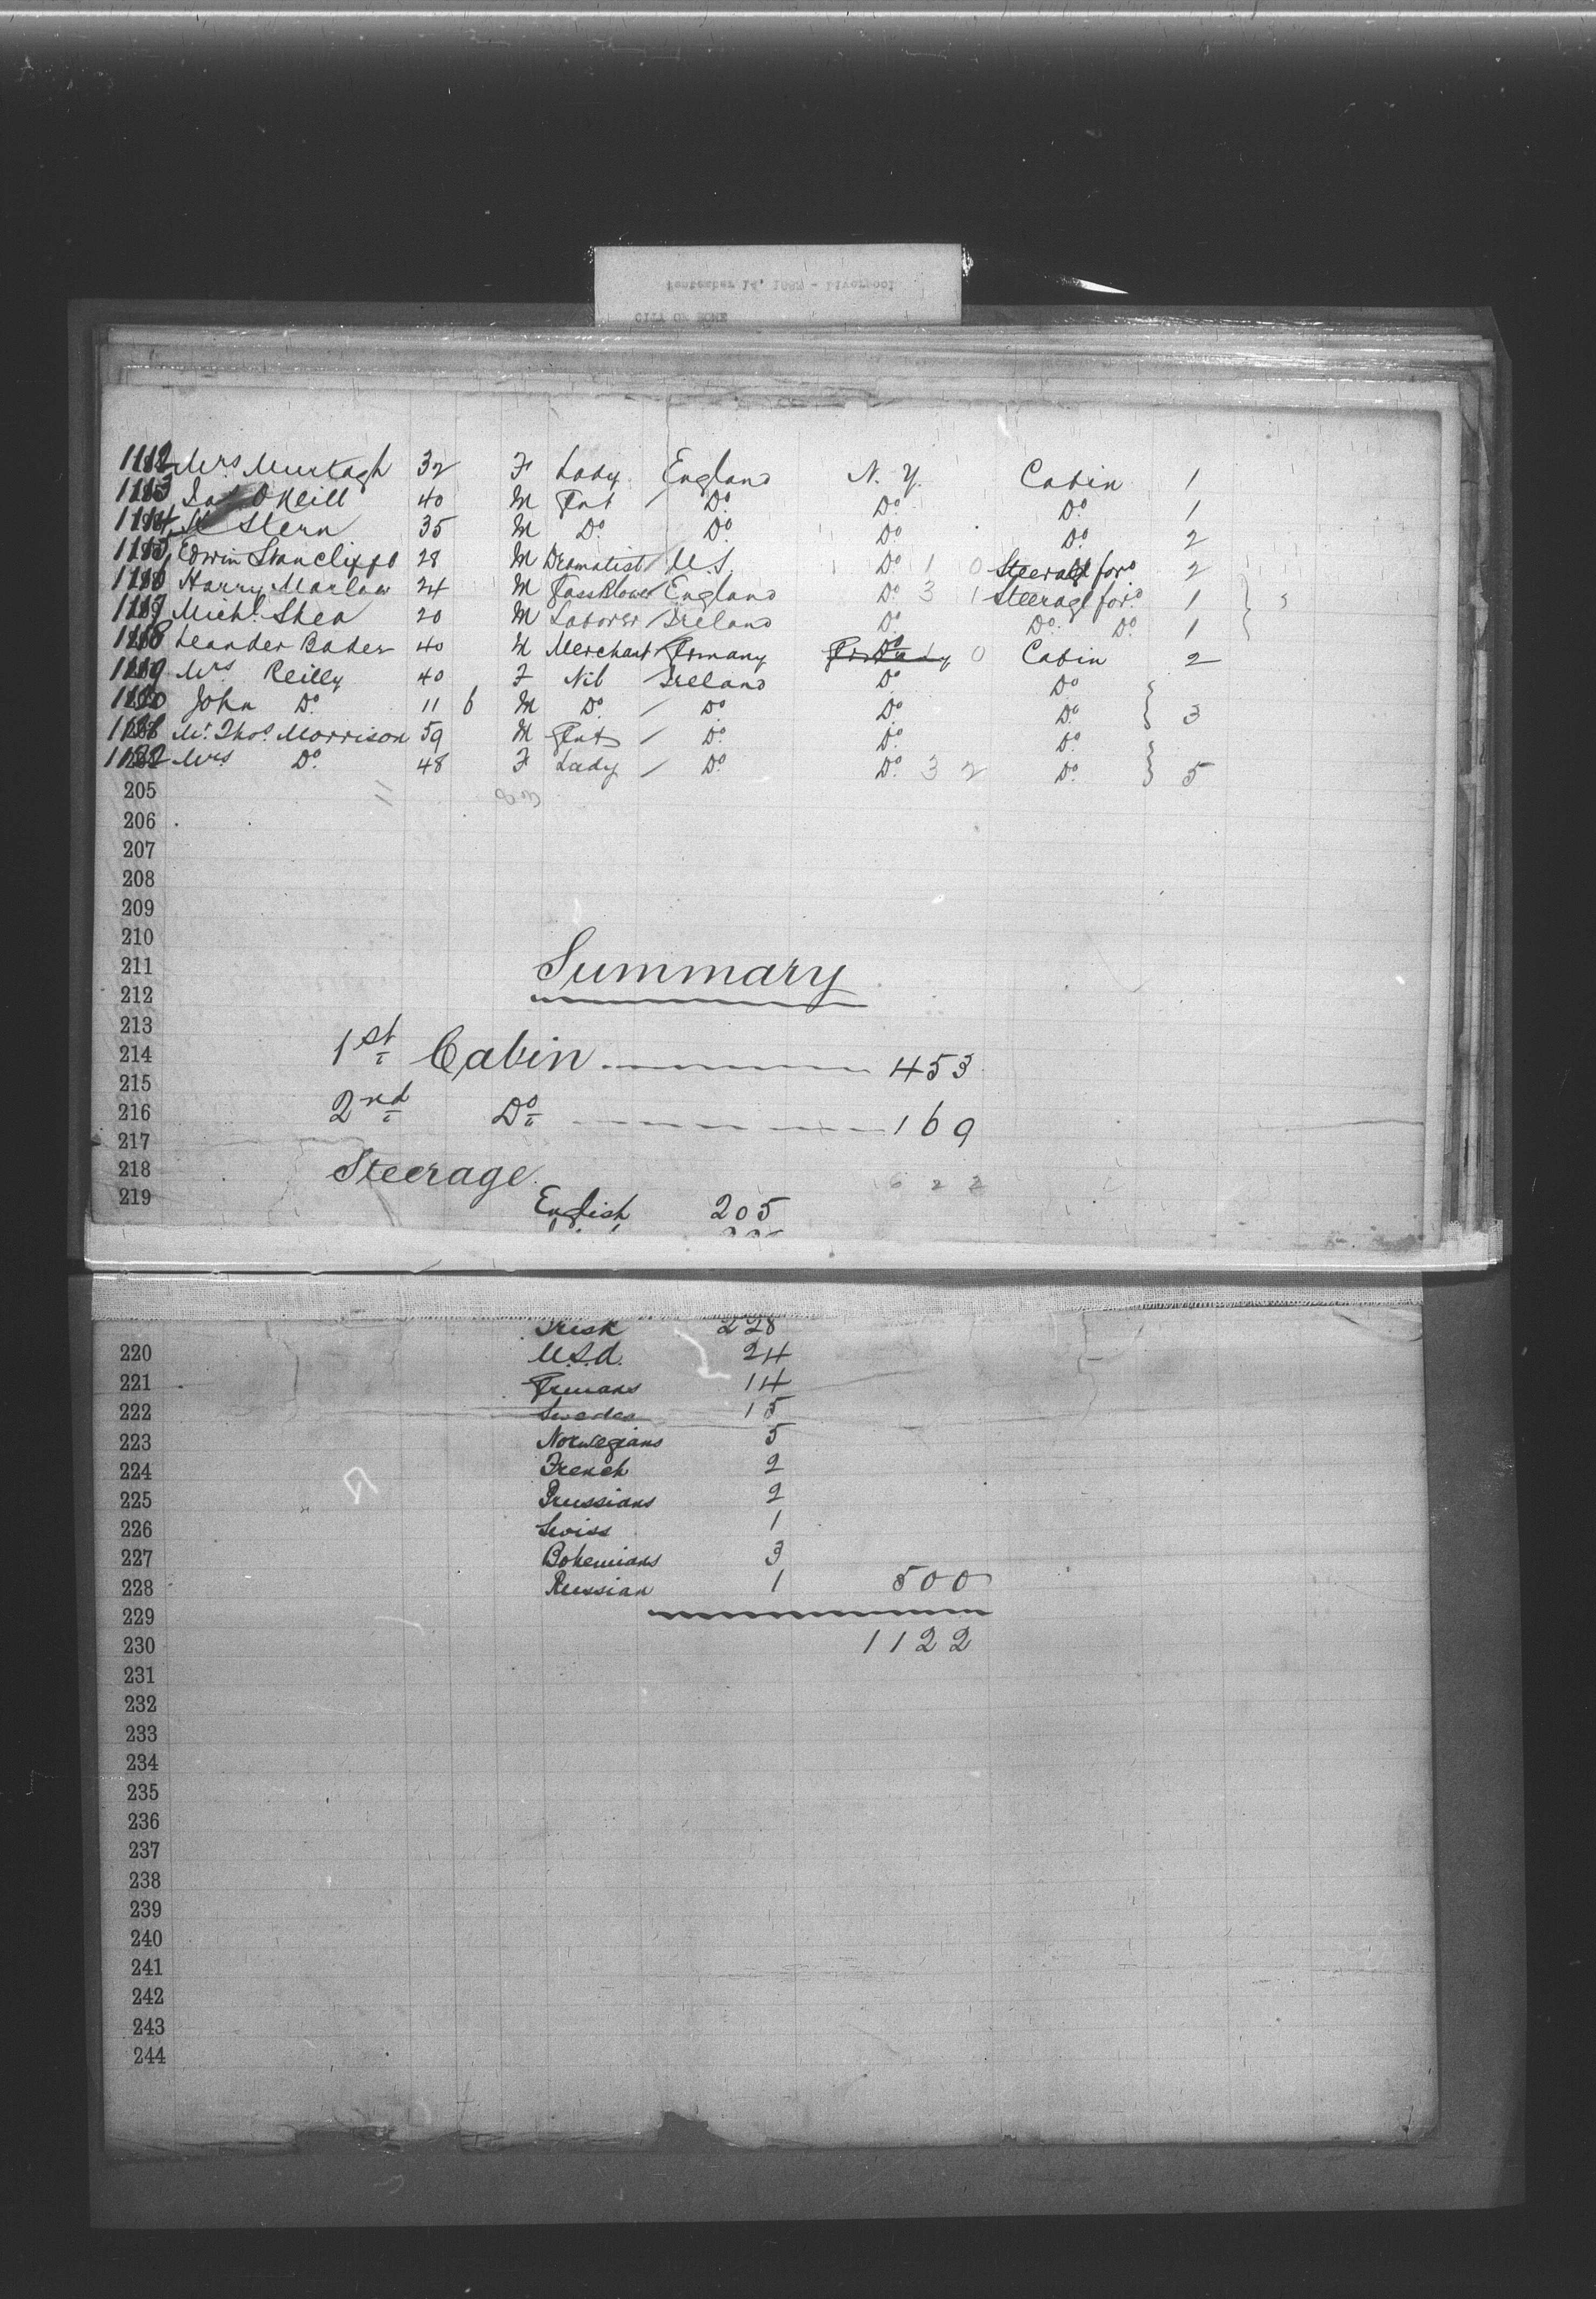 September 14, 1887 - Liverpool
CITY OF ROME
1112 Mrs Murtagh 32 F Lady England N. Y. Cabin 1
1113 Jas O'Neill 40 M Gent / Do Do Do 1
1114 Stern 35 M Do Do Do Do 2
1115 Edwin 28 M Dramatist / U.S. Do 1 0 Steerage for'd 2
1116 Harry Marlow 24 M Glass Blower England Do 3 1 Steerage for'd 1
1117 Michl. Shea 20 M Laborer / Ireland Do Do Do 1 } 3
1118 Leander Baker 40 M Merchant / Germany Do 0 Cabin 2
1119 Mrs Reilly 40 F Nil / Ireland Do Do
1120 John Do 11 6 M Do / Do Do Do } 3
1121 Mr. Thos. Morrison 59 M Gent / Do Do Do
1122 Mrs Do 48 F Lady / Do Do 3 2 Do } 5
205
206
207
208
209
210
211 Summary
212
213
214 1st Cabin 453
215
216 2nd Do 169
217
218 Steerage 622
219 English 205
Irish 228
220 U.S.A. 24
221 Germans 14
222 Swedes 15
223 Norwegians 5
224 French 2
225 Prussians 2
226 Swiss 1
227 Bohemians 3
228 Russian 1 500
229
230 1122
231
232
233
234
235
236
237
238
239
240
241
242
243
244